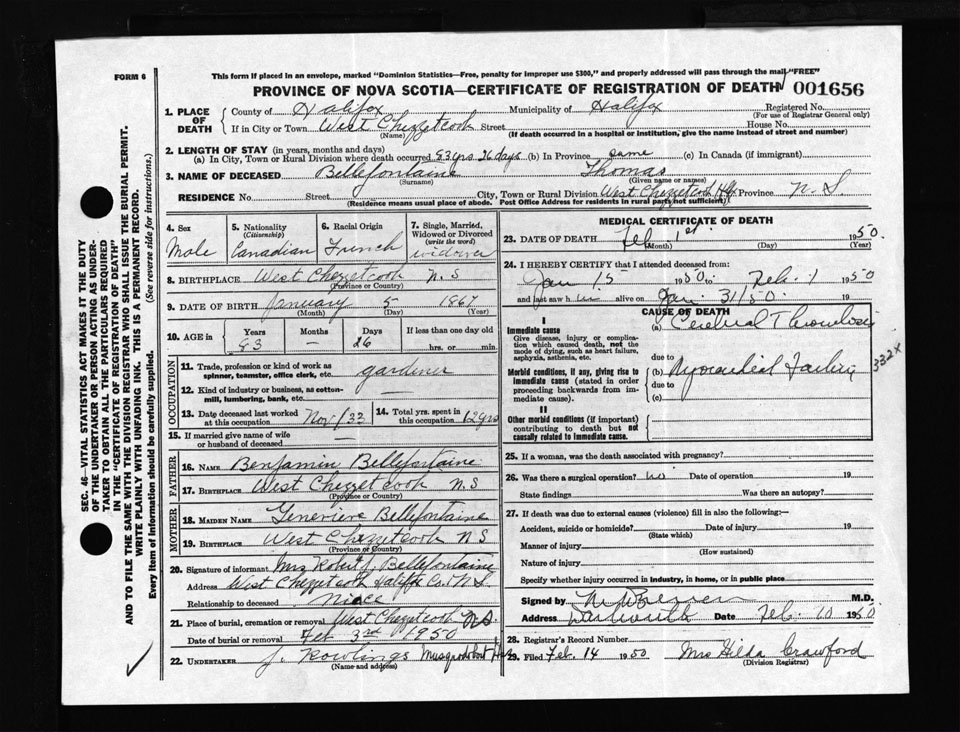 FORM 6
This form if placed in an envelope, marked "Dominion Statistics—Free, penalty for improper use $300," and properly addressed will pass through the mail "FREE"
PROVINCE OF NOVA SCOTIA—CERTIFICATE OF REGISTRATION OF DEATH 001656
1. PLACE OF DEATH County of Halifax Municipality of Halifax Registered No.
(For use of Registrar General only)
If in City or Town West Chezzetcook Street House No.
(Name) (If death occurred in a hospital or institution, give the name instead of street and number)
2. LENGTH OF STAY (in years, months and days)
(a) In City, Town or Rural Division where death occurred 83 yrs 26 days (b) In Province same (c) In Canada (if immigrant)
3. NAME OF DECEASED Bellefontaine Thomas
(Surname) (Given name or names)
RESIDENCE No. Street City, Town or Rural Division West Chezzetcook Hfx Province N. S.
(Residence means usual place of abode. Post Office Address for residents in rural parts not sufficient)
4. Sex Male
5. Nationality (Citizenship) Canadian
6. Racial Origin French
7. Single, Married, Widowed or Divorced (write the word) widower
8. BIRTHPLACE West Chezzetcook N. S
(Province or Country)
9. DATE OF BIRTH January 5 1867
(Month) (Day) (Year)
10. AGE in Years Months Days If less than one day old
83 — 26 hrs. or min.
OCCUPATION
11. Trade, profession or kind of work as spinner, teamster, office clerk, etc. gardiner
12. Kind of industry or business, as cotton-mill, lumbering, bank, etc. —
13. Date deceased last worked at this occupation Nov/33
14. Total yrs. spent in this occupation 12 yrs
15. If married give name of wife or husband of deceased —
FATHER
16. NAME Benjamin Bellefontaine
17. BIRTHPLACE West Chezzetcook N. S
(Province or Country)
MOTHER
18. MAIDEN NAME Genevieve Bellefontaine
19. BIRTHPLACE West Chezzetcook N S
(Province or Country)
20. Signature of informant Mrs Robert J. Bellefontaine
Address West Chezzetcook Halifax Co. N. S.
Relationship to deceased Niece
21. Place of burial, cremation or removal West Chezzetcook N. S.
Date of burial or removal Feb 3rd 1950
22. UNDERTAKER J. Rowlings Musquodoboit Hbr
(Name and address)
MEDICAL CERTIFICATE OF DEATH
23. DATE OF DEATH Feb 1st 1950.
(Month) (Day) (Year)
24. I HEREBY CERTIFY that I attended deceased from:
Jan 15 1950 to Feb. 1 1950
and last saw him alive on Jan. 31/50. 19
CAUSE OF DEATH
I
Immediate cause (a) Cerebral Thrombosis
Give disease, injury or complication which caused death, not the mode of dying, such as heart failure, asphyxia, asthenia, etc.
due to
Morbid conditions, if any, giving rise to immediate cause (stated in order proceeding backwards from immediate cause). (b) Myocardial Failure
due to
(c)
332X
II
Other morbid conditions (if important) contributing to death but not causally related to immediate cause.
25. If a woman, was the death associated with pregnancy?
26. Was there a surgical operation? no Date of operation 19
State findings Was there an autopsy?
27. If death was due to external causes (violence) fill in also the following:—
Accident, suicide or homicide? Date of injury 19
(State which)
Manner of injury
(How sustained)
Nature of injury
Specify whether injury occurred in industry, in home, or in public place
Signed by M.D.
Address Dartmouth Date Feb. 10 1950
28. Registrar's Record Number
29. Filed Feb. 14 1950 Mrs Hilda Crawford
(Division Registrar)
SEC. 46—VITAL STATISTICS ACT MAKES IT THE DUTY
OF THE UNDERTAKER OR PERSON ACTING AS UNDER-
TAKER TO OBTAIN ALL THE PARTICULARS REQUIRED
IN THE "CERTIFICATE OF REGISTRATION OF DEATH"
AND TO FILE THE SAME WITH THE DIVISION REGISTRAR WHO SHALL ISSUE THE BURIAL PERMIT.
WRITE PLAINLY WITH UNFADING INK. THIS IS A PERMANENT RECORD.
Every item of information should be carefully supplied. (See reverse side for instructions.)